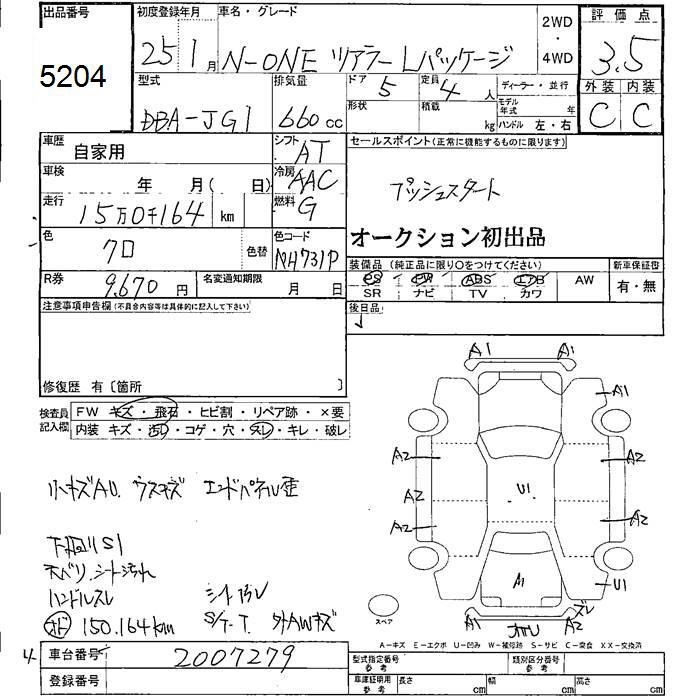 出品番号 初度登録年月 車名・グレード 2WD・4WD 評価点
5204 25 1月 N-ONE ツアラーLパッケージ 3.5
型式 排気量 ドア 5 定員 4人 ディーラー・並行 外装 内装
DBA-JG1 660cc 形状 積載 kg モデル年式 年 ハンドル 左・右 C C
車歴 自家用 シフト AT セールスポイント(正常に機能するものに限ります)
車検 年 月( 日) 冷房 AAC プッシュスタート
走行 15万0千164 km 燃料 G
オークション初出品
色 クロ 色替 色コード NH731P
装備品(純正品に限り○をつけてください) 新車保証書
R券 9,670円 名変通知期限 月 日 PS PW ABS エアB AW 有・無
SR ナビ TV カワ
注意事項申告欄(不具合内容等は具体的に記入して下さい) 後日品
修復歴 有〔箇所 〕
検査員記入欄 FW キズ・飛石・ヒビ割・リペア跡・×要
内装 キズ・汚レ・コゲ・穴・スレ・キレ・破レ
小キズAU ウスキズ エンドパネル歪
下廻りS1
天バリ、シート汚れ
ハンドルスレ
150.164km S/T-T. 外AWキズ
A1 A1
A1
A2 A2
A2 U1 A2
A2
A1 U1
A1 A2 スレ
スペア
A-キズ E-エクボ U-凹み W-補修跡 S-サビ C-腐食 XX-交換済
4 車台番号 2007279
登録番号
型式指定番号 参考 類別区分番号 参考
車庫証明用 参考 長さ cm 幅 cm 高さ cm